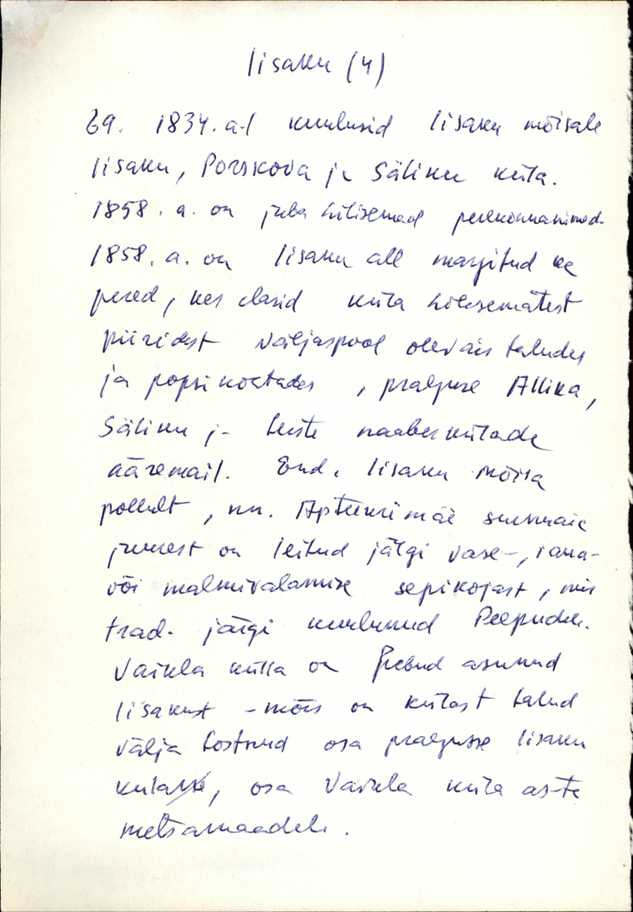 Iisaku (4)
69. 1834. a-l kuulusid Iisaku mõisale
Iisaku, Porskova ja Säliku küla.
1858. a. on juba hilisemad perekonnanimed.
1858. a. on Iisaku all märgitud ka
pered, kes elasid küla hilisematest
piiridest väljaspool olevais taludes
ja popsikohtades, praeguse Allika,
Säliku j- teiste naaberkülade
ääremail. End. Iisaku mõisa
põllult, nn. Apteekrimäe suurmäe
juurest on leitud jälgi vase-, raua-
või malmivalamise sepikojast, mis
trad. järgi kuulunud Peepudele.
Vaikla külla on Pebud asunud
Iisakust - mõis on külast talud
välja tõstnud osa praegusse Iisaku
külasse, osa Vaikla küla as-te
metsamaadele.